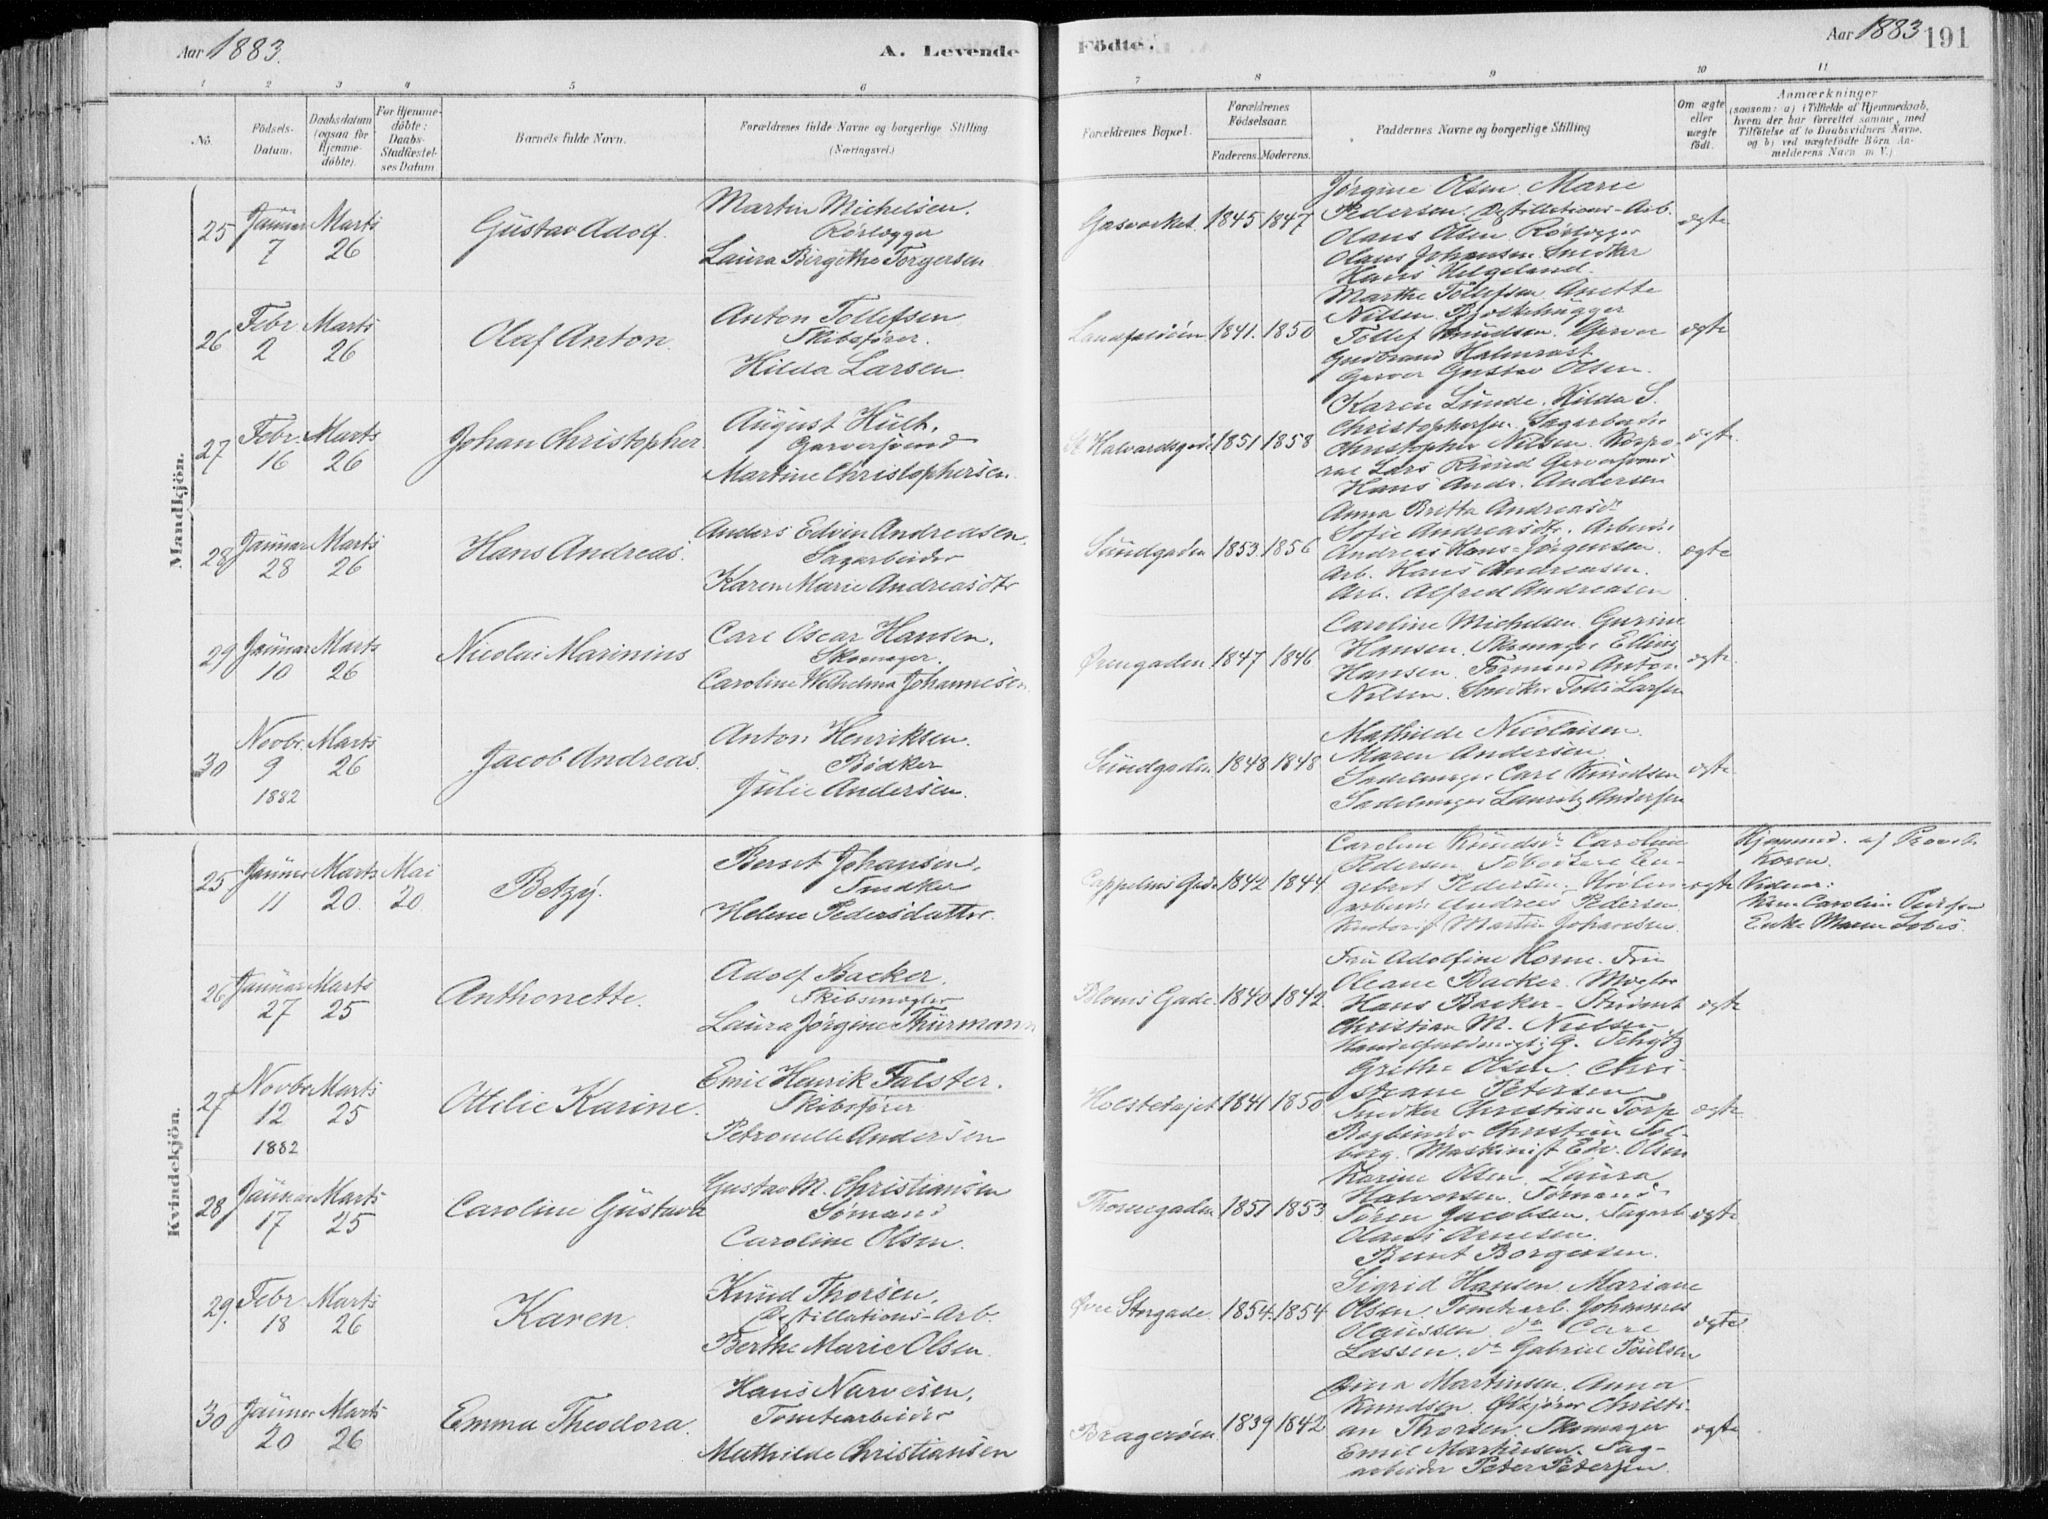 Aar 1883.
A. Levende
Födte.
Aar 1883
191
1
2
3
4
5
6
7
8
9
10
11
No.
Födsels-
Datum.
Daabsdatum
(ogsaa for
Hjemme-
döbte).
For Hjemme-
döbte:
Daabs-
Stadfæstel-
ses Datum
Barnets fulde Navn.
Forældrenes fulde Navne og borgerlige Stilling
(Næringsvei.)
Forældrenes Bopæl.
Forældrenes
Födselsaar.
Faderens.
Moderens.
Faddernes Navne og borgerlige Stilling
Om ægte
eller
uægte
födt.
Anmærkninger
(saasom: a) i Tilfælde af Hjemmedaab,
hvem der har forrettet samme, med
Tilföielse af to Daabsvidners Navne.
og b) ved uægtefödte Börn An-
melderens Navn m V.)
Mandkjön.
25
Januar
7
Marts
26
Gustav Adolf.
Martin Michelsen.
Rørlægger
Laura Birgithe Torgersen
Gasverket
1845
1847
Jørgine Olsen. Marie
Pedersen. Destillations-Arb.
Olaus Olsen. Rørlægger
Olaus Johansen. Snedker
Hans Helgeland.
ægte
26
Febr
2
Marts
26
Olaf Anton.
Anton Tollefsen
Skibsfører.
Hilda Larsen
Landfaløien
1841.
1850
Marthe Tollefsen Anette
Nilsen.
Tollef Knudsen. Garver
Gudbrand Halmrast
Garver Gustav Olsen.
ægte
27
Febr.
16
Marts
26
Johan Christopher.
August Hult.
Garversvend
Martine Christophersen.
St Halvardsgade
1851
1858
Karen Lunde. Hilda S.
Christophersen. Sagarbeider
Christopher Nilsen. Korpo-
ral Lars Garversvend
Hans Andr. Andersen
ægte.
28
Januar
28
Marts
26
Hans Andreas.
Anders Edvin Andreasen.
Sagarbeider
Karen Marie Andreasdtr
Sundgaden
1853.
1856
Anna Britta Andreasdr
Sofie Andreasdtr. Arbeider
Andreas Hans-Jørgenssen.
Arb. Hans Andreasen.
Arb. Alfred Andreasen
ægte
29
Januar
10
Marts
26
Nicolai Marinius
Carl Oscar Hansen.
Skomager.
Caroline Wilhelma Johannesen
Ørengaden
1847
1846
Caroline Michelsen. Gurine
Hansen. Skomager Elling
Hansen. Formand Anton
Nilsen. Snedker Tolli Larsen
ægte.
30
Novbr.
9
1882
Marts
26
Jacob Andreas.
Anton Henriksen.
Bødker
Julie Andersen.
Sundgaden
1848
1848
Mathilde Nicolaisen.
Maren Andersen
Sadelmager Carl Knudsen
Sadelmager Lauritz Andersen
ægte
Kvindekjön.
25
Januar
11
Marts
20.
Mai
20.
Betzy.
Bernt Johansen.
Snedker
Helene Pedersdatter.
Cappelens Gade
1842
1844
Caroline Knudsdr Caroline
Pedersen. En-
gebret Pedersen. Høvleri-
arbeider Andreas Pedersen.
Kontorist Martin Johanssen.
ægte
Hjemmed. af Provst
Koren.
Vidner:
Caroline Pedersen
Enke Maren
26
Januar
27
Marts
25
Anthonette.
Adolf Backer.
Skibsmægler
Laura Jørgine Thurmann
Bloms Gade.
1840
1842.
Fru Adolfine Horne. Fru
Oleane Backer. Mægler
Hans Backer. Student
Christian M. Nielsen
Handelsfuldmægtig G. Schytz
ægte
27
Novbr
12
1882
Marts
25
Ottilie Karine.
Emil Henrik Falster.
Skibsfører
Petronelle Andersen
Holstetajet
1841
1850
Grethe Olsen. Chri-
stiane Petersen
Snedker Christian Torp
Bogbinder Christian Sol-
berg. Maskinist Edv. Olsen
ægte
28
Januar
17
Marts
25
Caroline Gustava
Gustav M. Christiansen
Sømand
Caroline Olsen.
Thornegaden
1851
1853
Karine Olsen. Laura
Halvorsen. Sømand
Søren Jacobsen. Sagarb.
Olaus Arnesen.
Bernt Borgersen.
ægte.
29.
Febr.
18
Marts
26
Karen.
Knud Thorsen.
Destillations-Arb.
Berthe Marie Olsen.
Øvre Storgade.
1854.
1854
Sigrid Hansen. Mariane
Olsen. Tomtearb. Johannes
Olaussen. do Carl
Lassen. do Gabriel Poulsen
ægte
30
Januar
20
Marts
26
Emma Theodora.
Hans Narvesen.
Tomtearbeider
Mathilde Christiansen
Bragerøen.
1839
1842
Dina Martinsen. Anna
Knudsen. Christi-
an Thorsen. Skomager
Emil Martinsen. Sag-
arbeider Peter Petersen.
ægte.